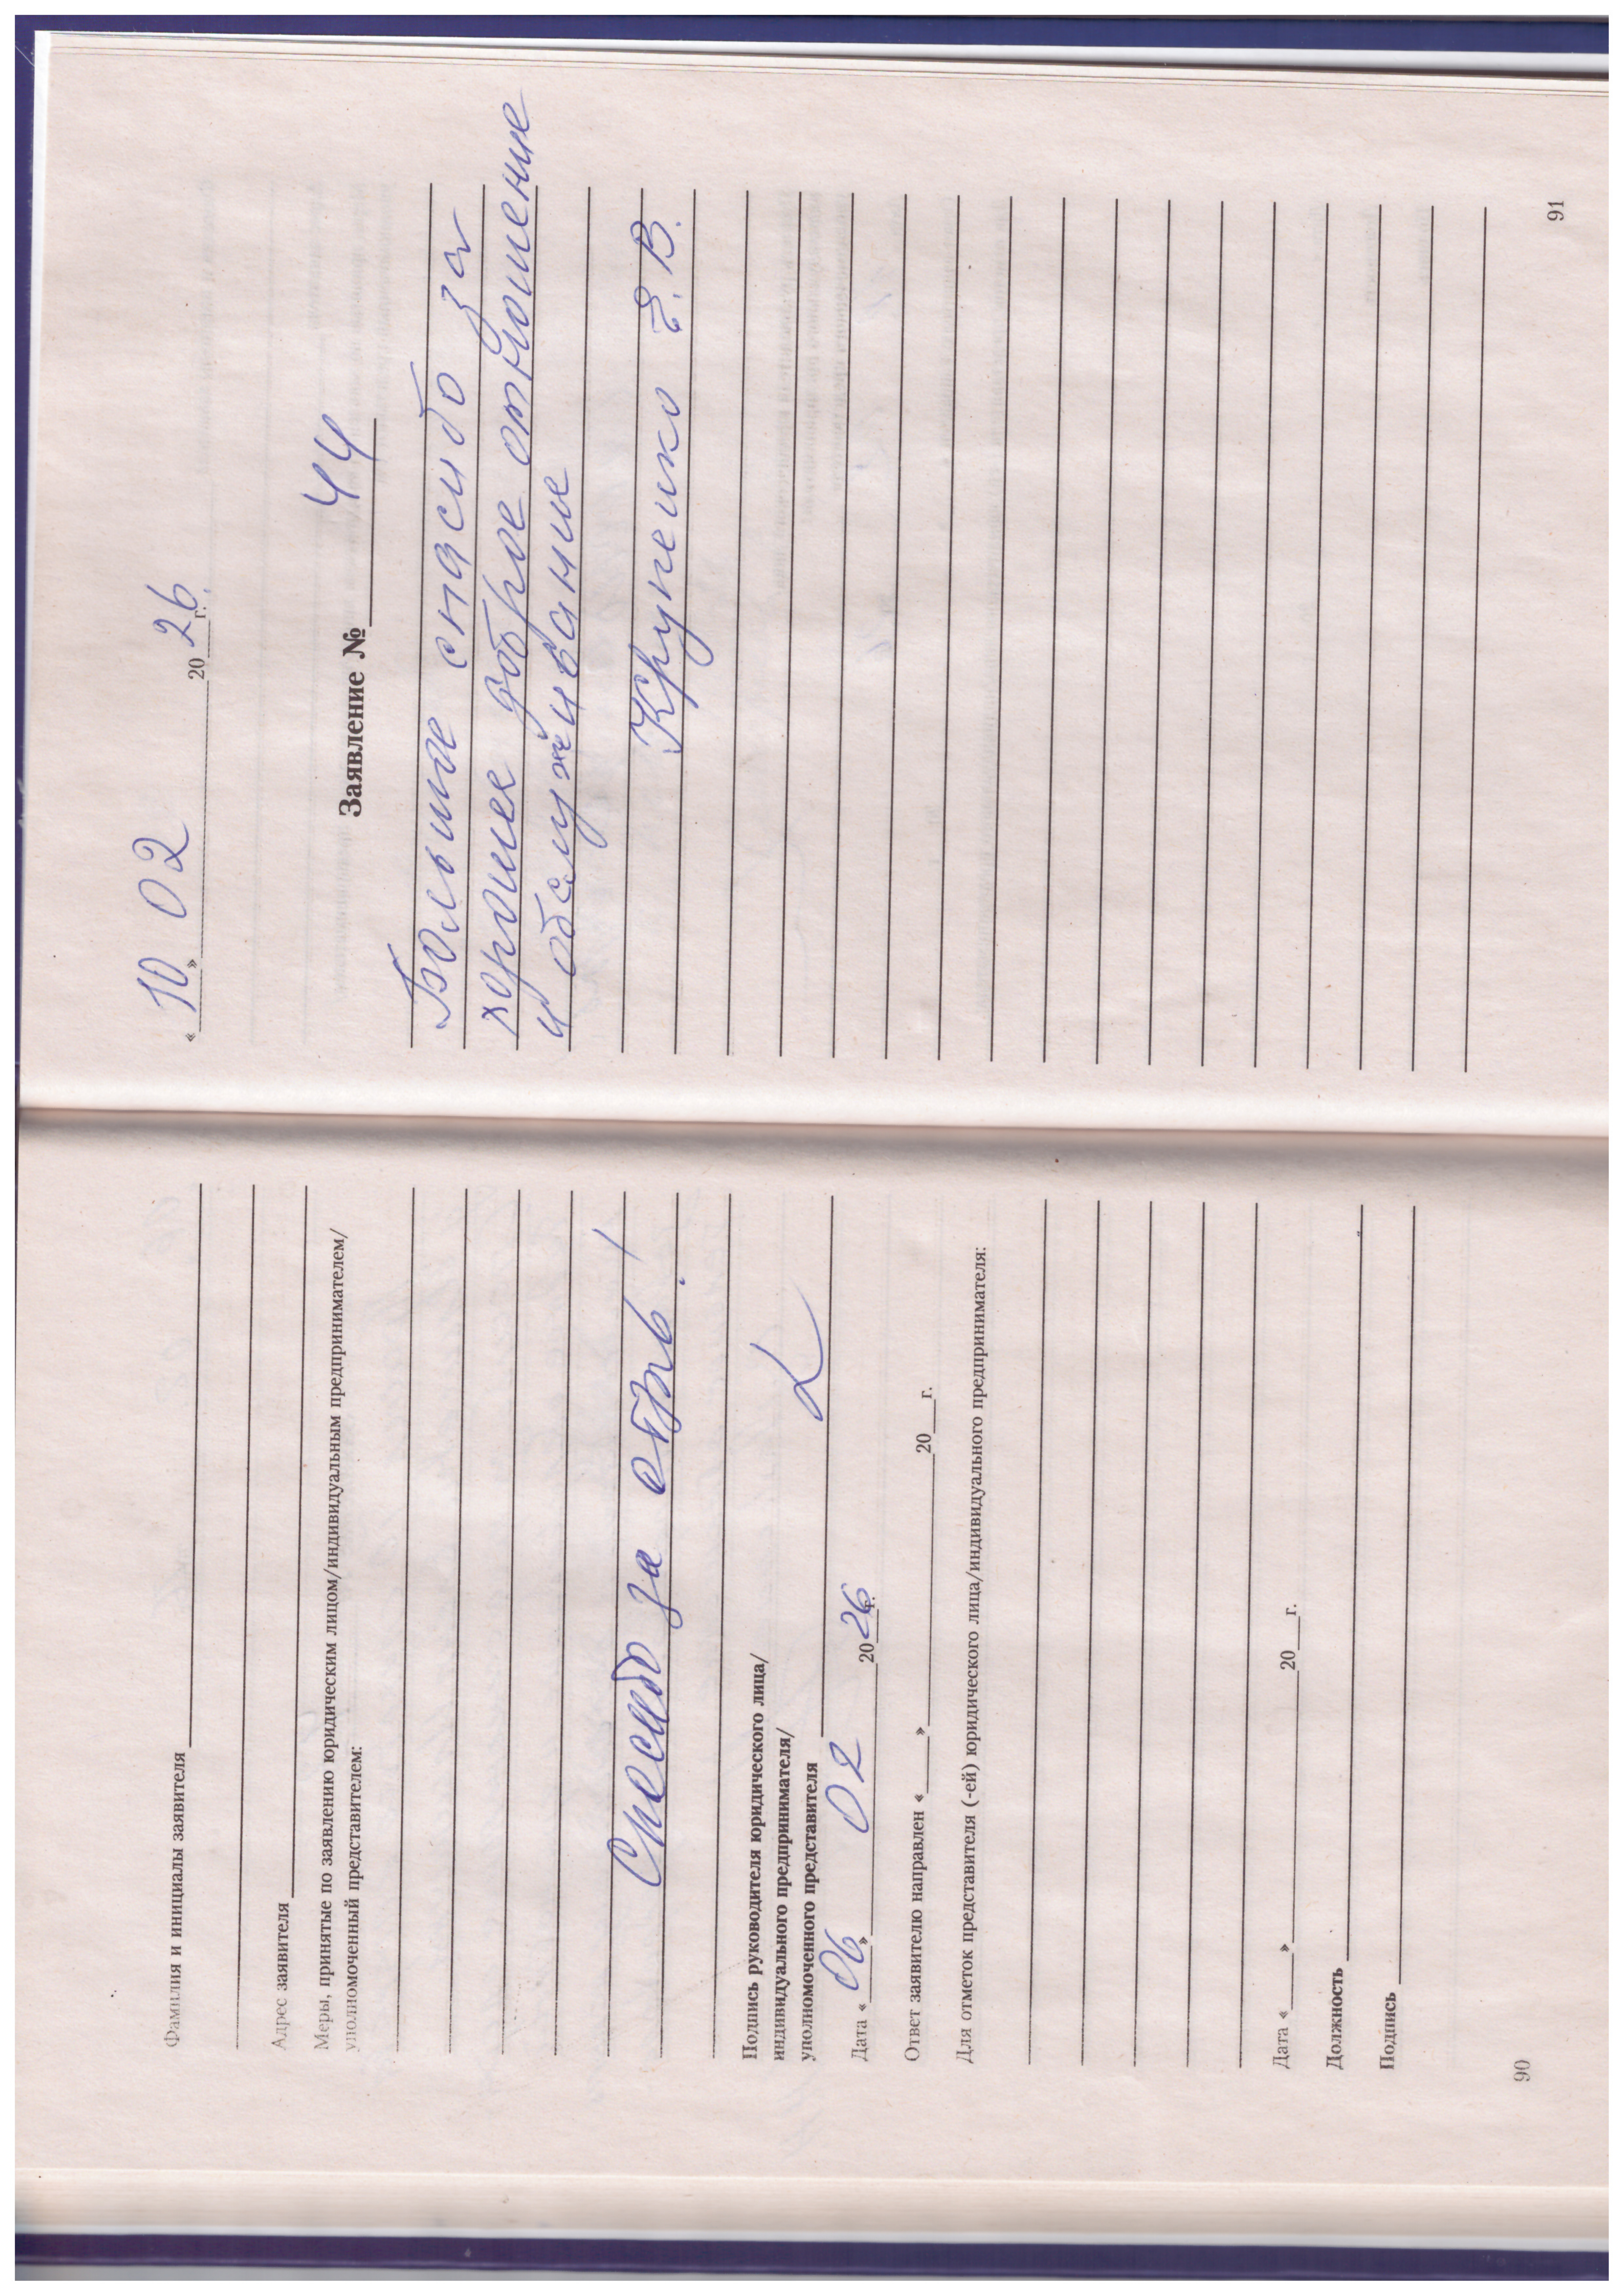 Фамилия и инициалы заявителя
Адрес заявителя
Меры, принятые по заявлению юридическим лицом/индивидуальным предпринимателем/
уполномоченный представителем:
Спасибо за отзыв!
Подпись руководителя юридического лица/
индивидуального предпринимателя/
уполномоченного представителя
Дата «06» 02 2026 г.
Ответ заявителю направлен «___» 20___г.
Для отметок представителя (-ей) юридического лица/индивидуального предпринимателя:
Дата «___» 20___г.
Должность
Подпись
90
«10» 02 2026 г.
Заявление № 44
Большое спасибо за
хорошее доброе отношение
и обслуживание
Крупенко Е.В.
91